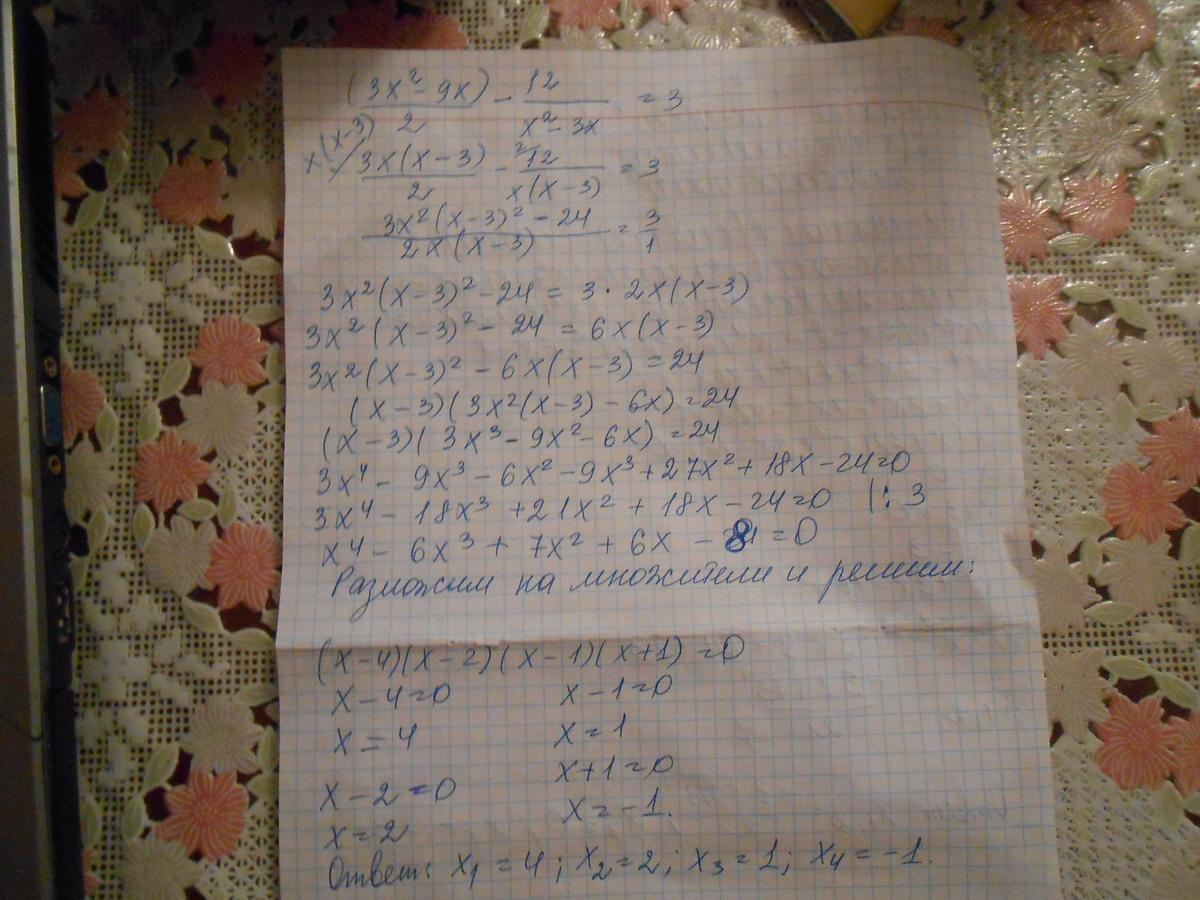 (3x² - 9x)/2 - 12/(x² - 3x) = 3
x(x-3)/ 3x(x-3)/2 - ²12/(x(x-3)) = 3
(3x²(x-3)² - 24)/(2x(x-3)) = 3/1
3x²(x-3)² - 24 = 3 · 2x(x-3)
3x²(x-3)² - 24 = 6x(x-3)
3x²(x-3)² - 6x(x-3) = 24
(x-3)(3x²(x-3) - 6x) = 24
(x-3)(3x³ - 9x² - 6x) = 24
3x⁴ - 9x³ - 6x² - 9x³ + 27x² + 18x - 24 = 0
3x⁴ - 18x³ + 21x² + 18x - 24 = 0 |: 3
x⁴ - 6x³ + 7x² + 6x - 8 = 0
Разложим на множители и решим:
(x-4)(x-2)(x-1)(x+1) = 0
x-4=0 x-1=0
x = 4 x = 1
x+1=0
x-2=0
x = -1.
x = 2
Ответ: x₁ = 4; x₂ = 2; x₃ = 1; x₄ = -1.